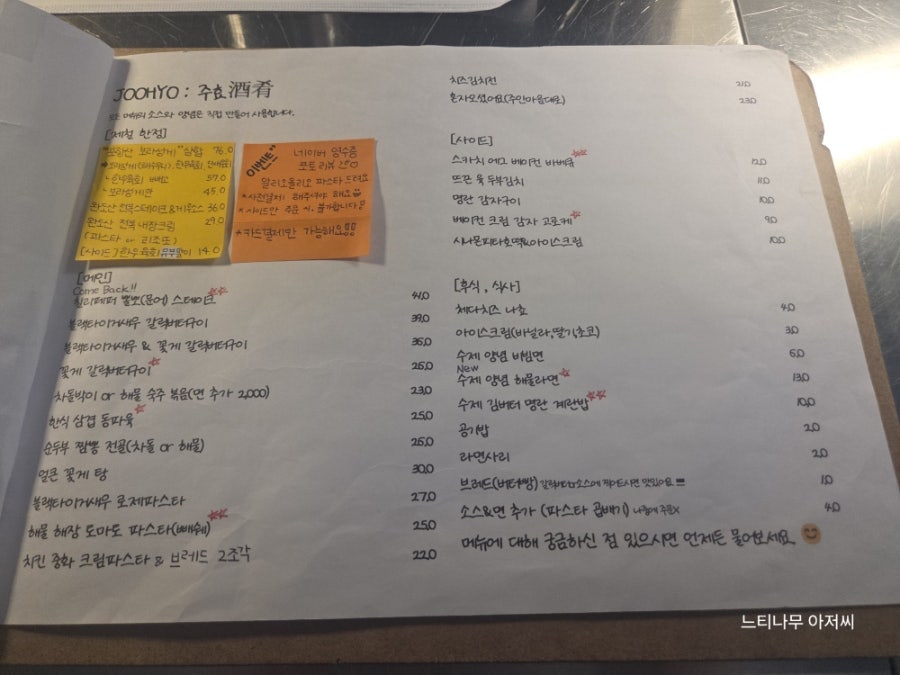 JOOHYO : 주효 酒肴
모든 메뉴의 소스와 양념은 직접 만들어 사용합니다.
[제철 한정]
보라성게 삼합 76.0
한우육회
└한우육회 빼고 57.0
└보라성게만 45.0
완도산 전복스테이크&게우소스 36.0
완도산 전복 내장크림 29.0
(파스타 or 리조또)
[사이드] 한우 육회 유부말이 14.0
이벤트
네이버 영수증
포토리뷰 시♡
알리오올리오 파스타 드려요
*사전결제 해주셔야 해요
*사이드만 주문 시, 불가합니다
*카드결제만 가능해요!!
[메인]
Come Back!!
칠리페퍼 뽈뽀(문어) 스테이크 41.0
블랙타이거새우 갈릭버터구이 39.0
블랙타이거새우 & 꽃게 갈릭버터구이 35.0
꽃게 갈릭버터구이 25.0
차돌박이 or 해물 숙주 볶음(면 추가 2,000) 23.0
한식 삼겹 동파육 25.0
순두부 짬뽕 전골(차돌 or 해물) 25.0
얼큰 꽃게 탕 30.0
블랙타이거새우 로제파스타 27.0
해물 해장 도마도 파스타(빼쉐) 25.0
치킨 중화 크림파스타 & 브레드 2조각 22.0
치즈김치전 21.0
혼자오셨어요(주인마음대로) 23.0
[사이드]
스카치 에그 베이컨 바베큐 12.0
뜨끈 묵 두부김치 11.0
명란 감자구이 10.0
베이컨 크림 감자 고로케 9.0
시나몬피타호떡&아이스크림 10.0
[후식, 식사]
체다치즈 나쵸 4.0
아이스크림(바닐라,딸기,초코) 3.0
수제 양념 비빔면 6.0
New
수제 양념 해물라면 13.0
수제 김버터 명란 계란밥 10.0
공기밥 2.0
라면사리 2.0
브레드(버터빵) 갈릭버터소스에 찍어드시면 맛있어요 !!! 1.0
소스&면 추가 (파스타 곱빼기) 나중에 주문X 4.0
메뉴에 대해 궁금하신 점 있으시면 언제든 물어보세요
느티나무 아저씨